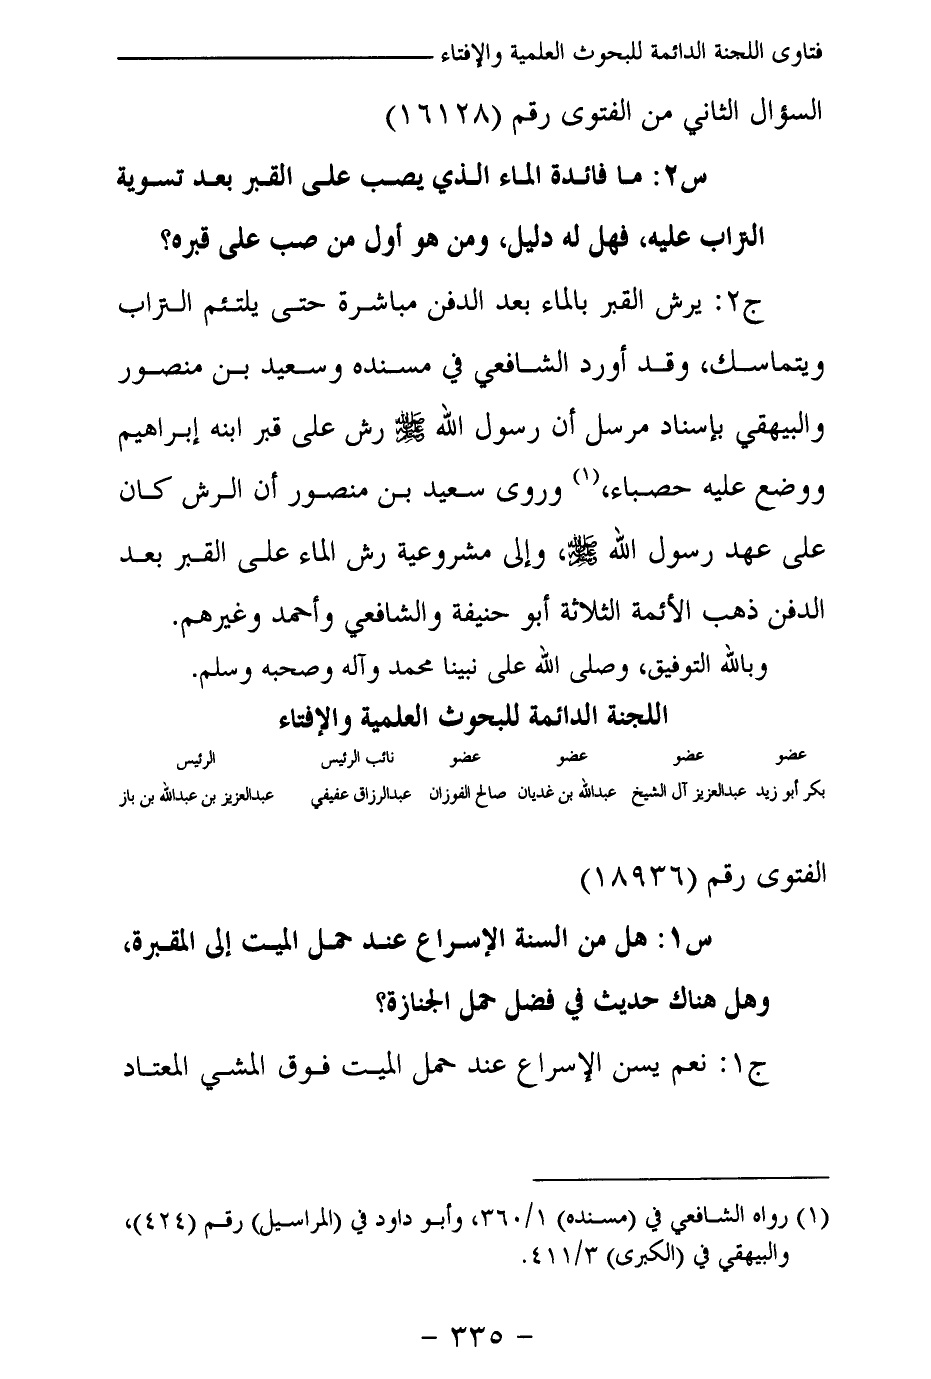 فتاوى اللجنة الدائمة للبحوث العلمية والإفتاء
السؤال الثاني من الفتوى رقم (١٦١٢٨)
س٢: ما فائدة الماء الذي يصب على القبر بعد تسوية
التراب عليه، فهل له دليل، ومن هو أول من صب على قبره؟
ج٢: يرش القبر بالماء بعد الدفن مباشرة حتى يلتئم التراب
ويتماسك، وقد أورد الشافعي في مسنده وسعيد بن منصور
والبيهقي بإسناد مرسل أن رسول الله ﷺ رش على قبر ابنه إبراهيم
ووضع عليه حصباء،(١) وروى سعيد بن منصور أن الرش كان
على عهد رسول الله ﷺ، وإلى مشروعية رش الماء على القبر بعد
الدفن ذهب الأئمة الثلاثة أبو حنيفة والشافعي وأحمد وغيرهم.
وبالله التوفيق، وصلى الله على نبينا محمد وآله وصحبه وسلم.
اللجنة الدائمة للبحوث العلمية والإفتاء
عضو عضو عضو عضو نائب الرئيس الرئيس
بكر أبو زيد عبدالعزيز آل الشيخ عبدالله بن غديان صالح الفوزان عبدالرزاق عفيفي عبدالعزيز بن عبدالله بن باز
الفتوى رقم (١٨٩٣٦)
س١: هل من السنة الإسراع عند حمل الميت إلى المقبرة،
وهل هناك حديث في فضل حمل الجنازة؟
ج١: نعم يسن الإسراع عند حمل الميت فوق المشي المعتاد
(١) رواه الشافعي في (مسنده) ٣٦٠/١، وأبو داود في (المراسيل) رقم (٤٢٤)،
والبيهقي في (الكبرى) ٤١١/٣.
- ٣٣٥ -